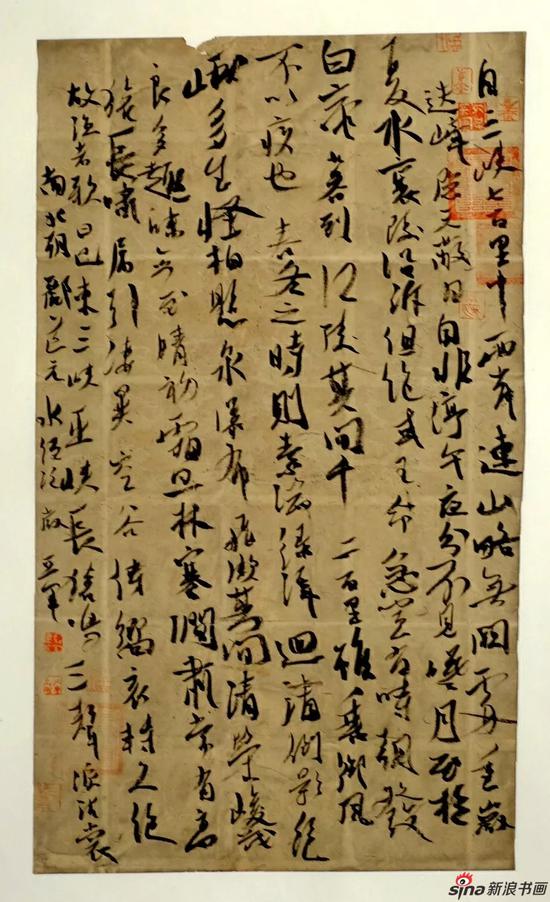 自三峽七百里中兩岸連山略無闕處重巖
迭嶂隱天蔽日自非渟午夜分不見曦月至於
夏水襄陵沿泝但絕或王命急宣有時朝發
白帝暮到江陵其間千二百里雖乘御風
不以疾也春冬之時則素湍綠潭迴清倒影絕
巘多生怪柏懸泉瀑布飛漱其間清榮峻茂
良多趣味每至晴初霜旦林寒澗肅常有高
猿長嘯屬引淒異空谷傳響哀轉久絕
故漁者歌曰巴東三峽巫峽長猿鳴三聲淚沾裳
南北朝酈道元水經注
sina新浪书画